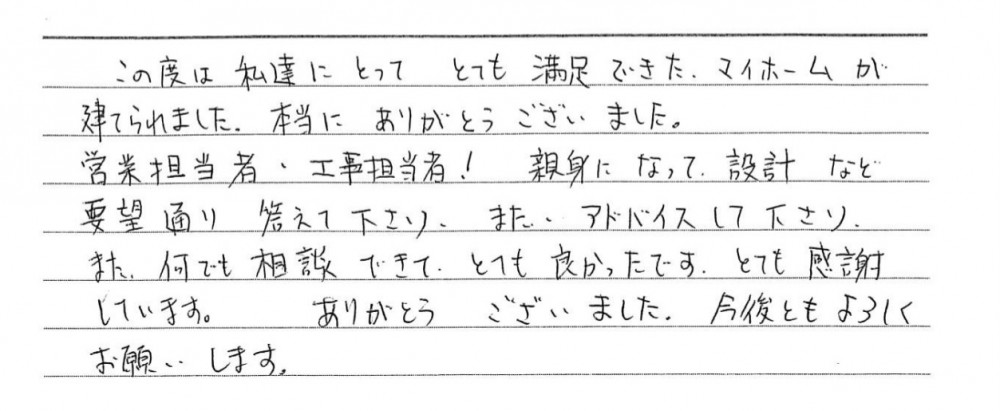 この度は 私達に とって とても 満足 できた、マイホーム が
建てられました。本当に ありがとう ございました。
営業担当者・工事担当者! 親身に なって、設計 など
要望通り 答えて下さり、また、アドバイスして下さり、
また、何でも相談できて、とても良かったです。とても感謝
しています。 ありがとう ございました。今後ともよろしく
お願い します。